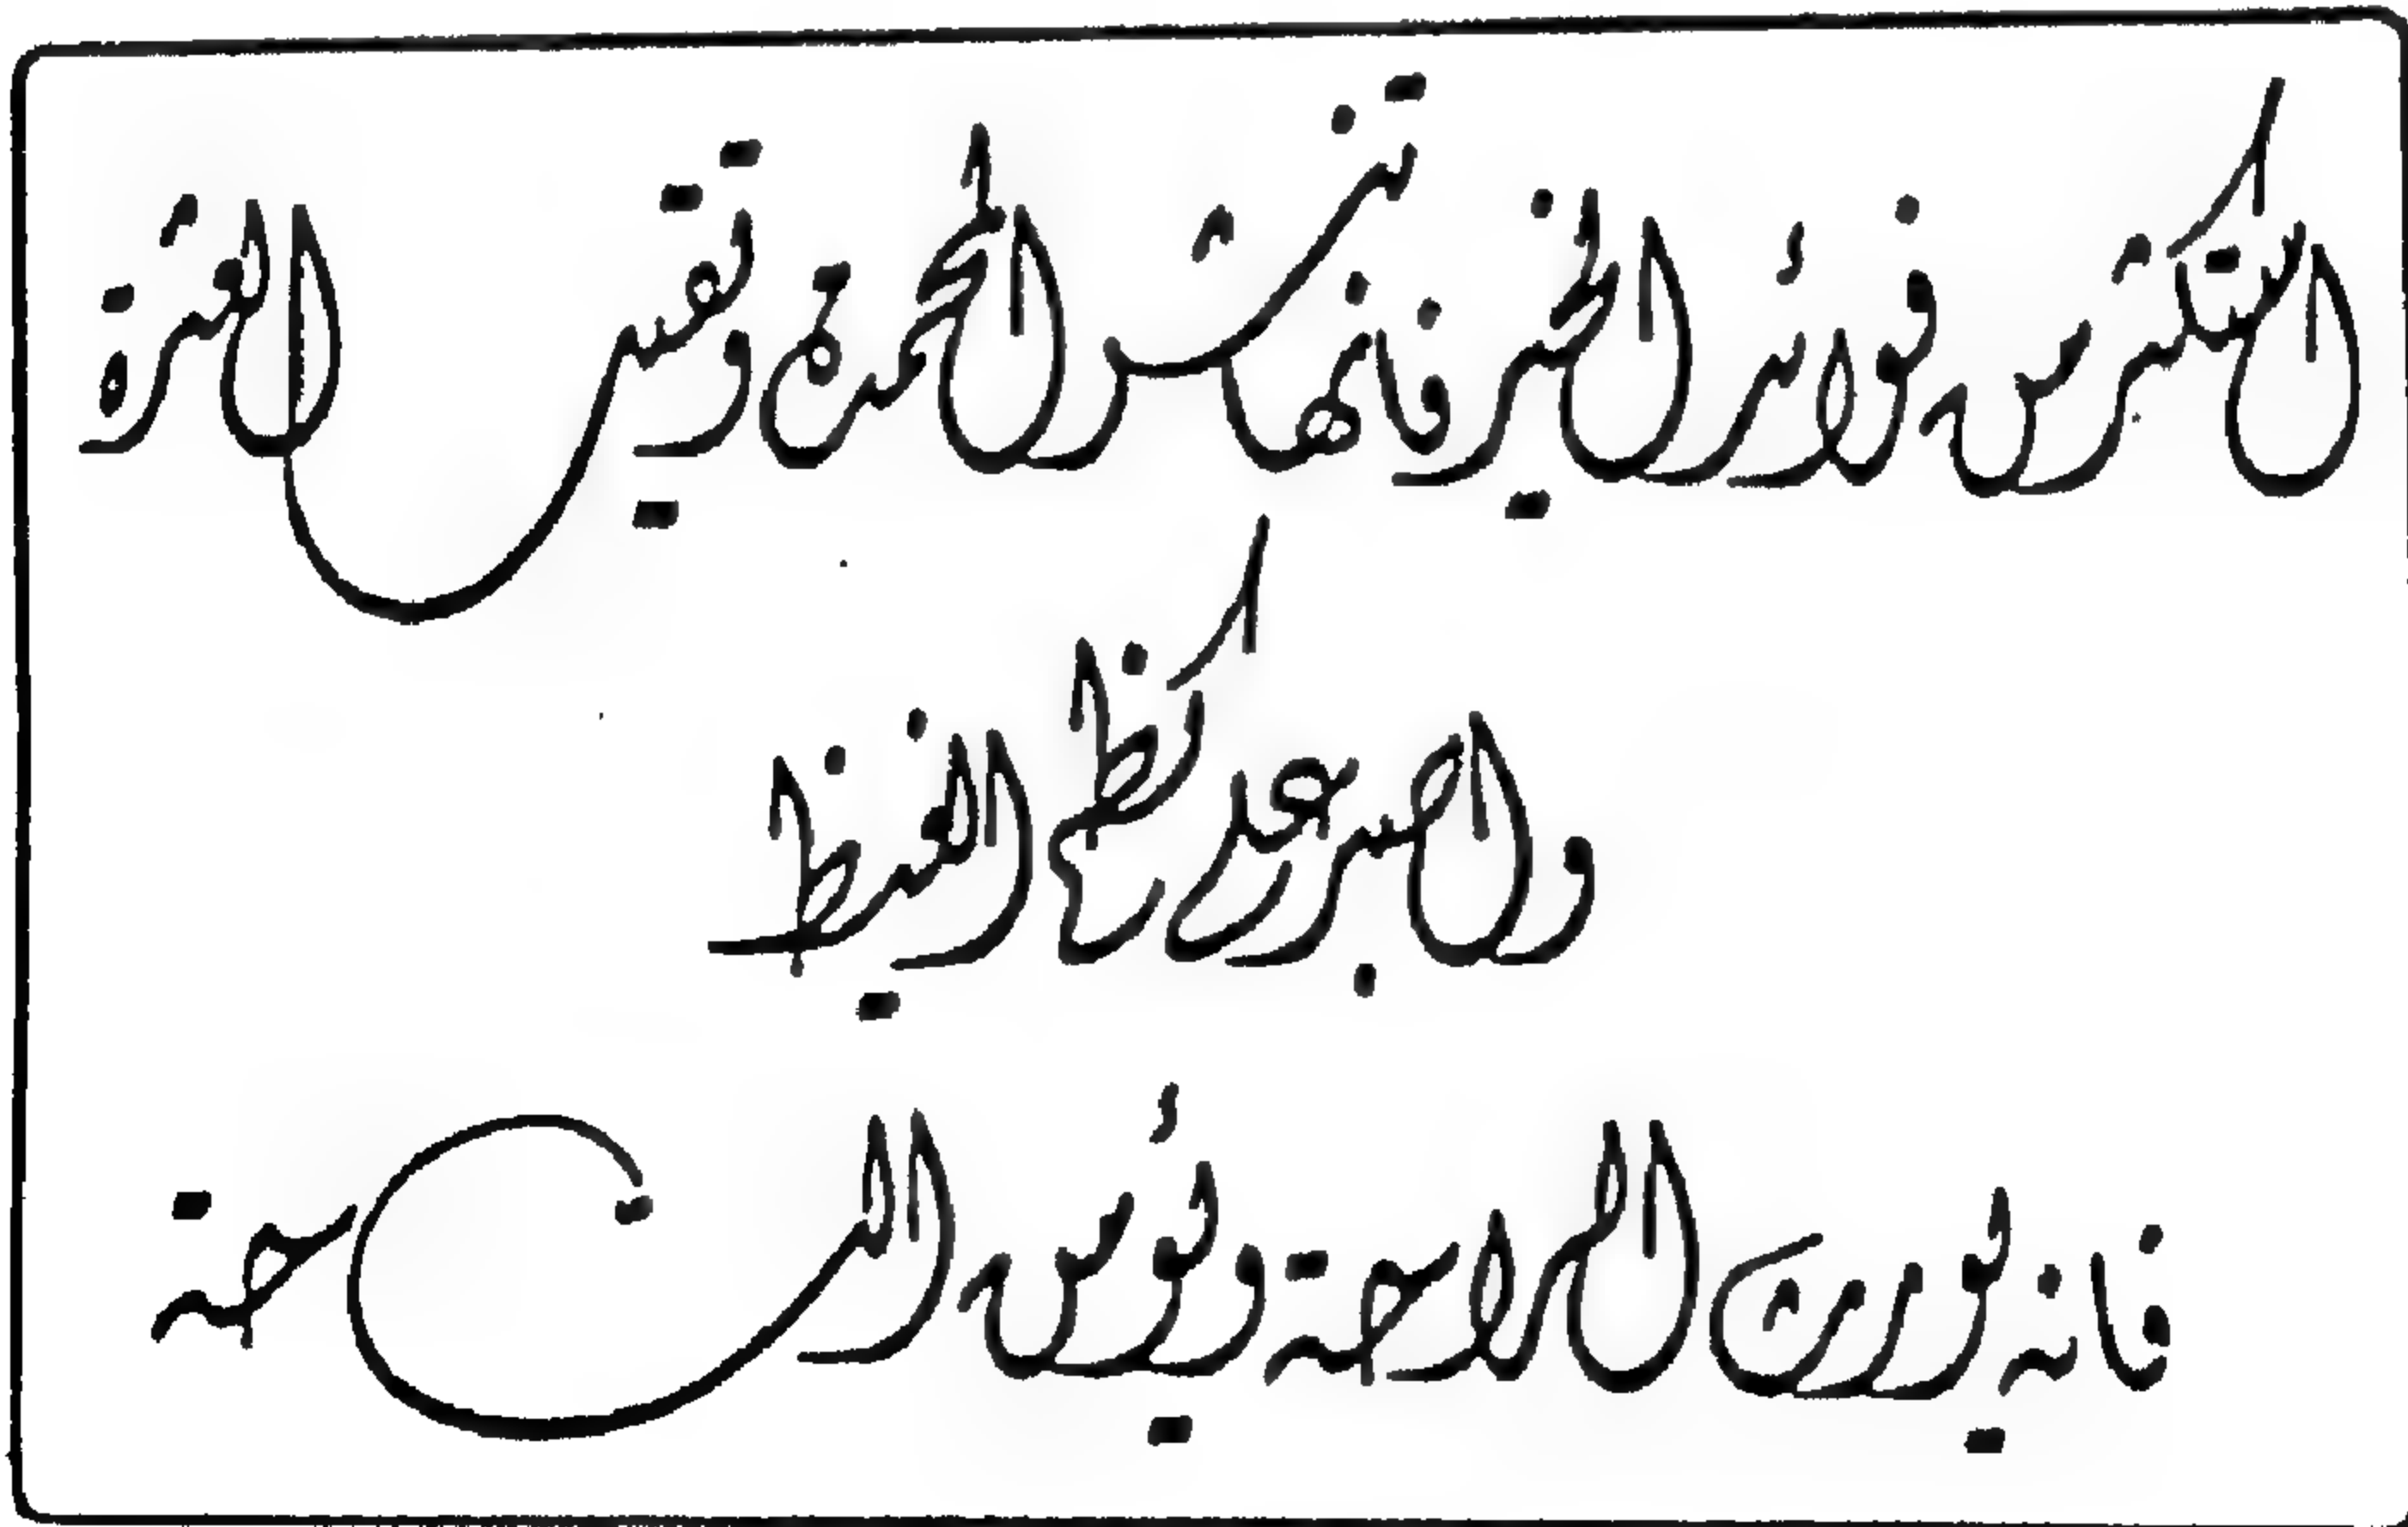 استكثر من فوائد الخير فإنها تنشر المحمدة وتقيل العثرة
واصبر على كظم الغيظ
فإنه يورث الراحة ويؤمن الساحة